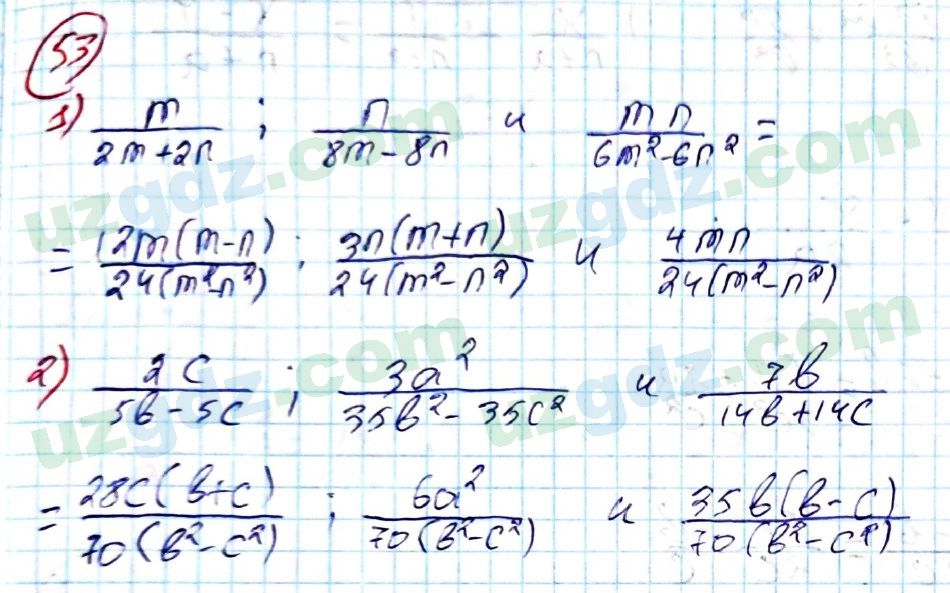 53
1) m/(2m+2n) ; n/(8m-8n) и mn/(6m²-6n²) =
= 12m(m-n)/24(m²-n²) ; 3n(m+n)/24(m²-n²) и 4mn/24(m²-n²)
2) 2c/(5b-5c) ; 3a²/(35b²-35c²) и 7b/(14b+14c)
= 28c(b+c)/70(b²-c²) ; 6a²/70(b²-c²) и 35b(b-c)/70(b²-c²)
uzgdz.com
uzgdz.com
uzgdz.com
uzgdz.com